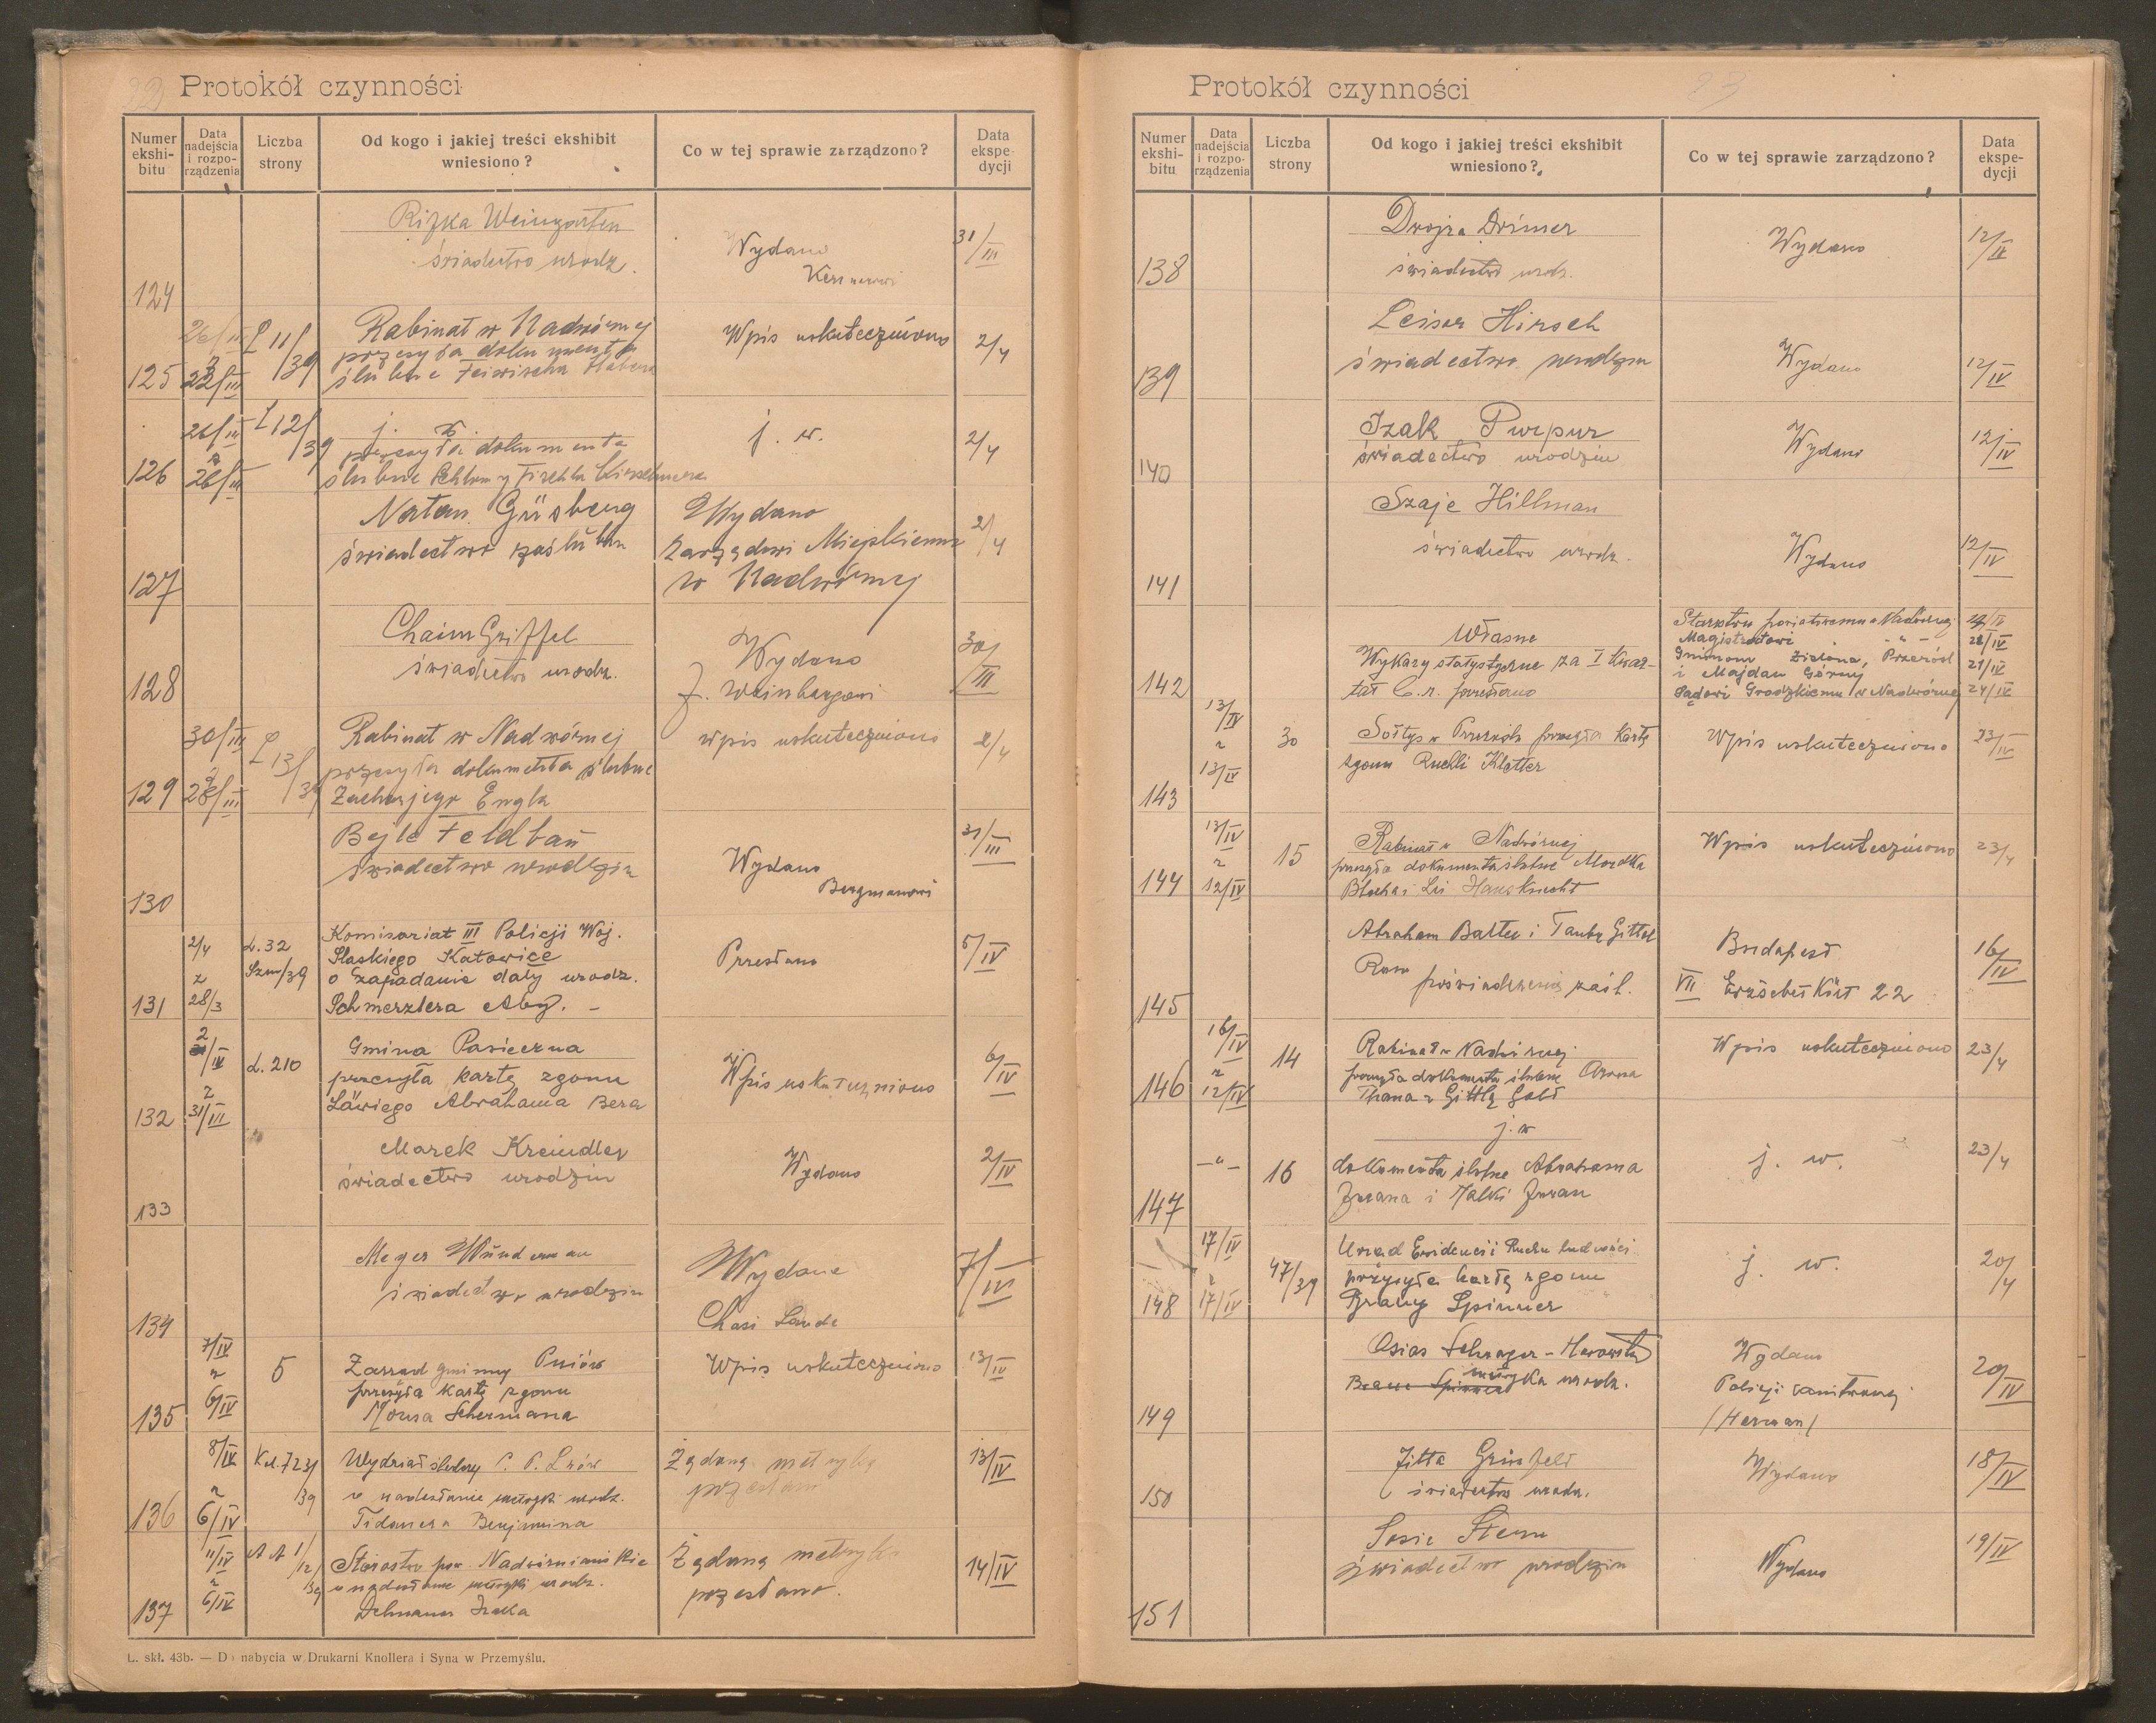 22
Protokół czynności
Numer ekshi-bitu
Data nadejścia i rozpo-rządzenia
Liczba strony
Od kogo i jakiej treści ekshibit wniesiono?
Co w tej sprawie zarządzono?
Data ekspe-dycji
124 Rifka Weingarten Wydano 31/III
świadectwo urodz.
125 26/III z 22/III L 11/39 Rabinat w Nadwórnej Wpis uskuteczniono 2/4
przesyła dokumenta
ślubne Feiwischa
126 26/III z 26/III L 12/39 j. w. j. w. 2/4
przesyła dokumenta
ślubne
127 Natan Günsberg Wydano 2/4
świadectwo zaślubin Zarządowi Miejskiemu
w Nadwórnej
128 Chaim Griffel Wydano 30/III
świadectwo urodz. J. Weinbergowi
129 30/III z 28/III L 13/39 Rabinat w Nadwórnej wpis uskuteczniono 2/4
przesyła dokumenta ślubne
Zacharjego Engla
130 Bejle Feldbau 31/III
świadectwo urodzin Wydano
Bergmanowi
131 2/4 z 28/3 L. 32 Szm/39 Komisariat III Policji Woj. Przesłano 5/IV
Śląskiego Katowice
o zapadanie daty urodz.
Schmerzlera Abr. -
132 2/IV z 31/III L. 210 Gmina Pasieczna Wpis uskuteczniono 6/IV
przesyła kartę zgonu
Läwiego Abrahama Bera
133 Marek Kreindler Wydano 2/IV
świadectwo urodzin
134 Meyer Wunderman Wydane 7/IV
świadectwo urodzin Chasi Lande
135 7/IV z 6/IV 5 Zarząd gminny Pniów Wpis uskuteczniono 13/IV
przesyła kartę zgonu
Schermana
136 8/IV z 6/IV 39 Wydział śledczy P. P. Lwów Żądaną metrykę 13/IV
o nadesłanie metryki urodz. przesłano
Benjamina
137 11/IV z 6/IV Starostwo pow. Nadwórniańskie Żądaną metrykę 14/IV
o nadesłanie metryki urodz. przesłano.
L. skł. 43b. — Do nabycia w Drukarni Knollera i Syna w Przemyślu.
23
Protokół czynności
Numer ekshi-bitu
Data nadejścia i rozpo-rządzenia
Liczba strony
Od kogo i jakiej treści ekshibit wniesiono?
Co w tej sprawie zarządzono?
Data ekspe-dycji
138 Dwojra Drimer Wydano 12/IV
świadectwo urdz.
139 Leiser Hirsch Wydano 12/IV
świadectwo urodzin
140 Izak Purpur Wydano 12/IV
świadectwo urodzin
141 Szaje Hillman Wydano 12/IV
świadectwo urodz.
142 Własne Starostwu powiatowemu w Nadwórnej
Magistratowi - " - 21/IV
Wykazy statystyczne za I Kwar- Gminom Zielona, Przerośl 21/IV
i Majdan Górny
tał b.r. przesłano Sądowi Grodzkiemu w Nadwórnej 24/IV
143 13/IV z 13/IV 30 Sołtys w Przerośli przesyła kartę Wpis uskuteczniono 23/IV
zgonu Ruchli Kletter
144 13/IV z 12/IV 15 Rabinat w Nadwórnej Wpis uskuteczniono 23/4
przesyła dokumenta ślubne Mordka
Blocha i Lei Hausknecht
145 Abraham Balter i Taube Gittel Budapest 16/IV
Ram poświadczenie zaśl. VII Erzsébet Körút 22
146 16/IV z 12/IV 14 Rabinat w Nadwórnej Wpis uskuteczniono 23/4
przesyła dokumenta ślubne Arona
Thana z Gittlą Gold
147 -"- 16 j. w j. w. 23/4
dokumenta ślubne Abrahama
Jurana i Malki Juran
148 17/IV z 17/IV 47/39 Urząd Ewidencji Ruchu ludności j. w. 20/4
przysyła kartę zgonu
Brany Spinner
149 Osias Schrager-Horowitz Wydano 20/IV
metryka urodz. Policji sanitarnej
/Herman/
150 Jitta Grinfeld Wydano 18/IV
świadectwo urodz.
151 Sosie Stern Wydano 19/IV
świadectwo urodzin